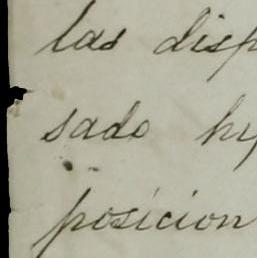 las disp
sado hy
posicion